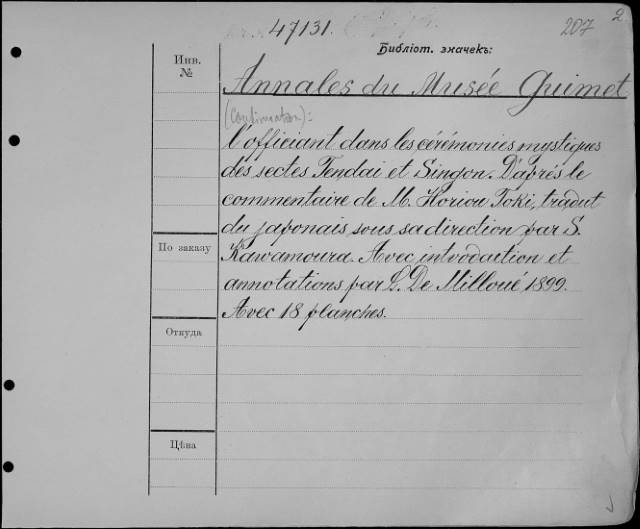 47131.
207
2
Библіот. значекъ:
Инв.
№
Annales du Musée Guimet
(Continuation):
l'officiant dans les cérémonies mystiques
des sectes Tendai et Singon. D'après le
commentaire de M. Horiou Toki, traduit
du japonais sous sa direction par S.
Kawamoura. Avec introduction et
annotations par L. De Milloué 1899.
Avec 18 planches.
По заказу
Откуда
Цѣна